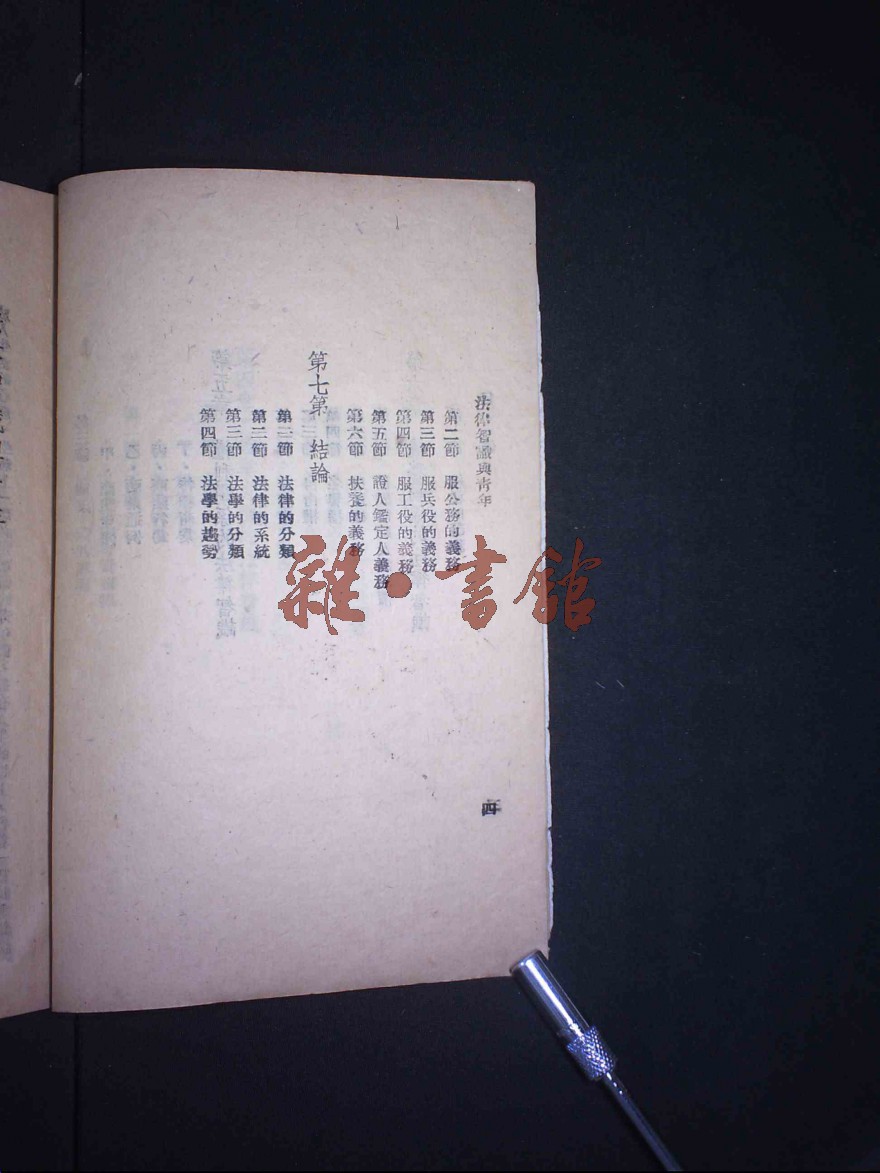 法律智識與青年
第二節 服公務的義務
第三節 服兵役的義務
第四節 服工役的義務
第五節 證人鑑定人義務
第六節 扶養的義務
第七第 結論
第一節 法律的分類
第二節 法律的系統
第三節 法學的分類
第四節 法學的趨勢
四
雜·書館